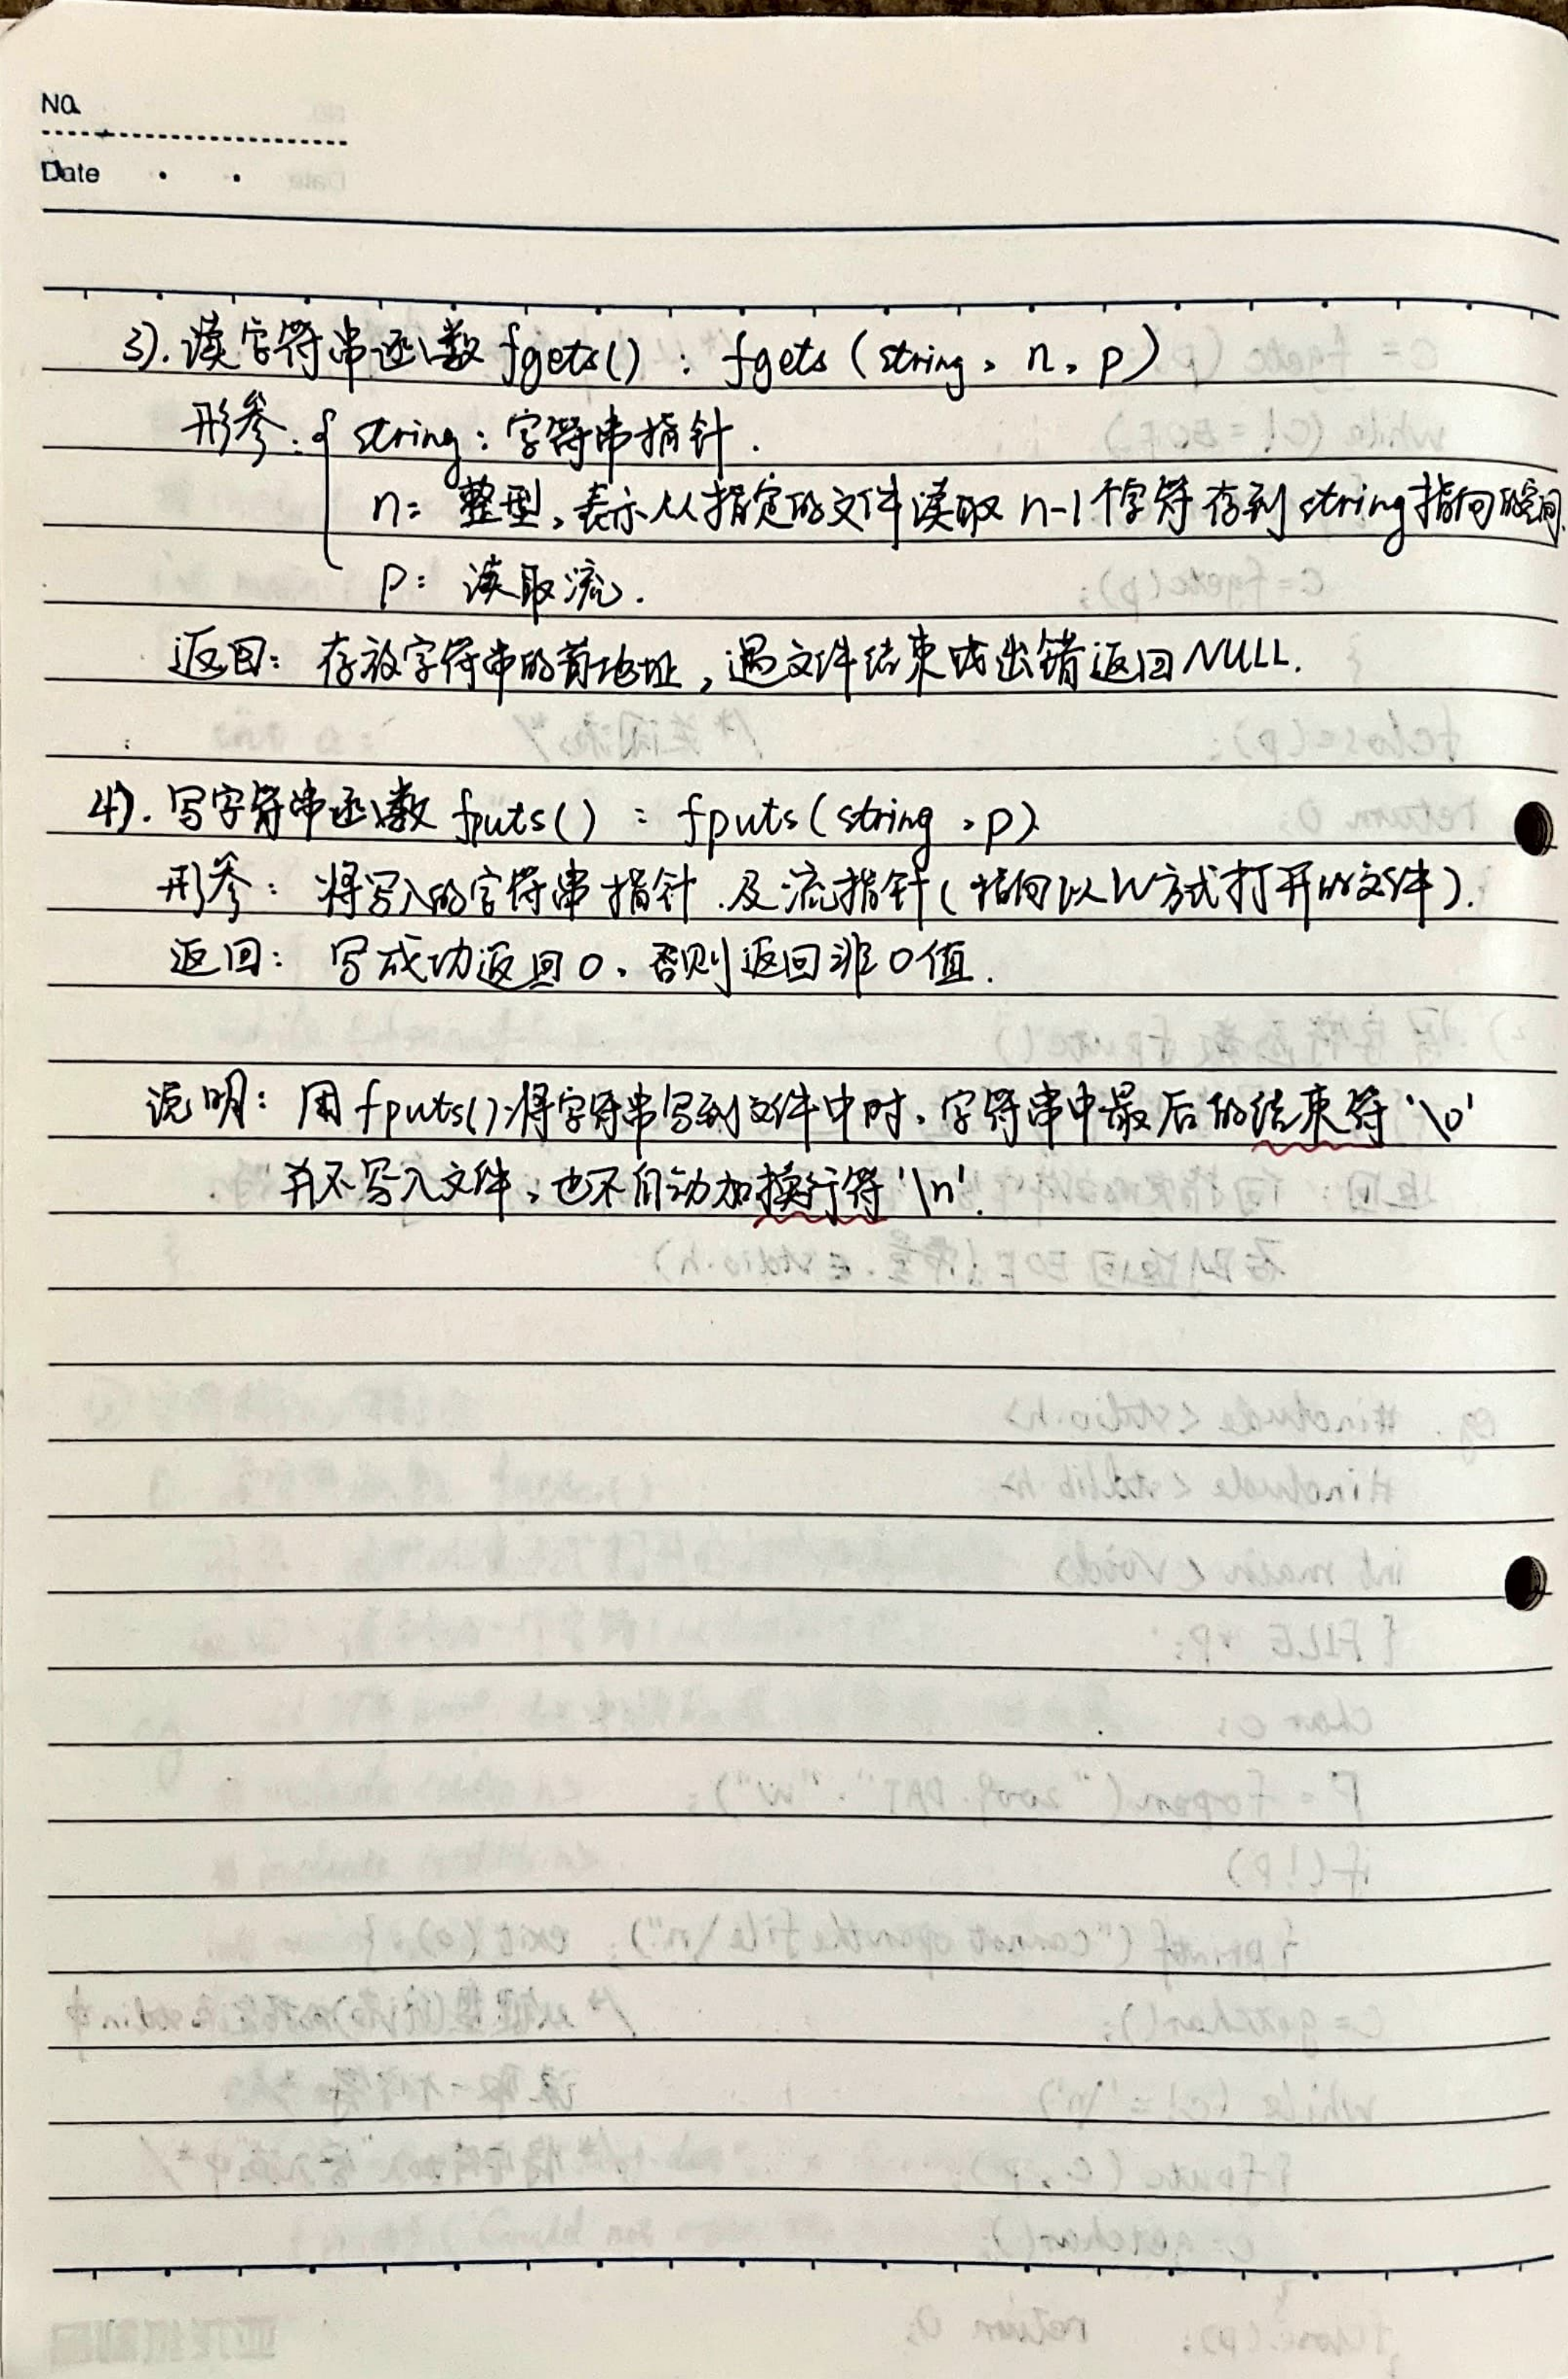 No.
Date
3). 读字符串函数 fgets() : fgets (string, n, p)
形参: { string: 字符串指针.
n: 整型, 表示从指定的文件读取 n-1个字符存到 string 指向的空间.
p: 读取流.
返回: 存放字符串的首地址, 遇文件结束或出错返回NULL.
4). 写字符串函数 fputs() : fputs(string, p)
形参: 将写入的字符串指针.及流指针(指向以W方式打开的文件).
返回: 写成功返回0, 否则返回非0值.
说明: 用fputs()将字符串写到文件中时, 字符串中最后的结束符'\0'
并不写入文件, 也不自动加换行符'\n'.